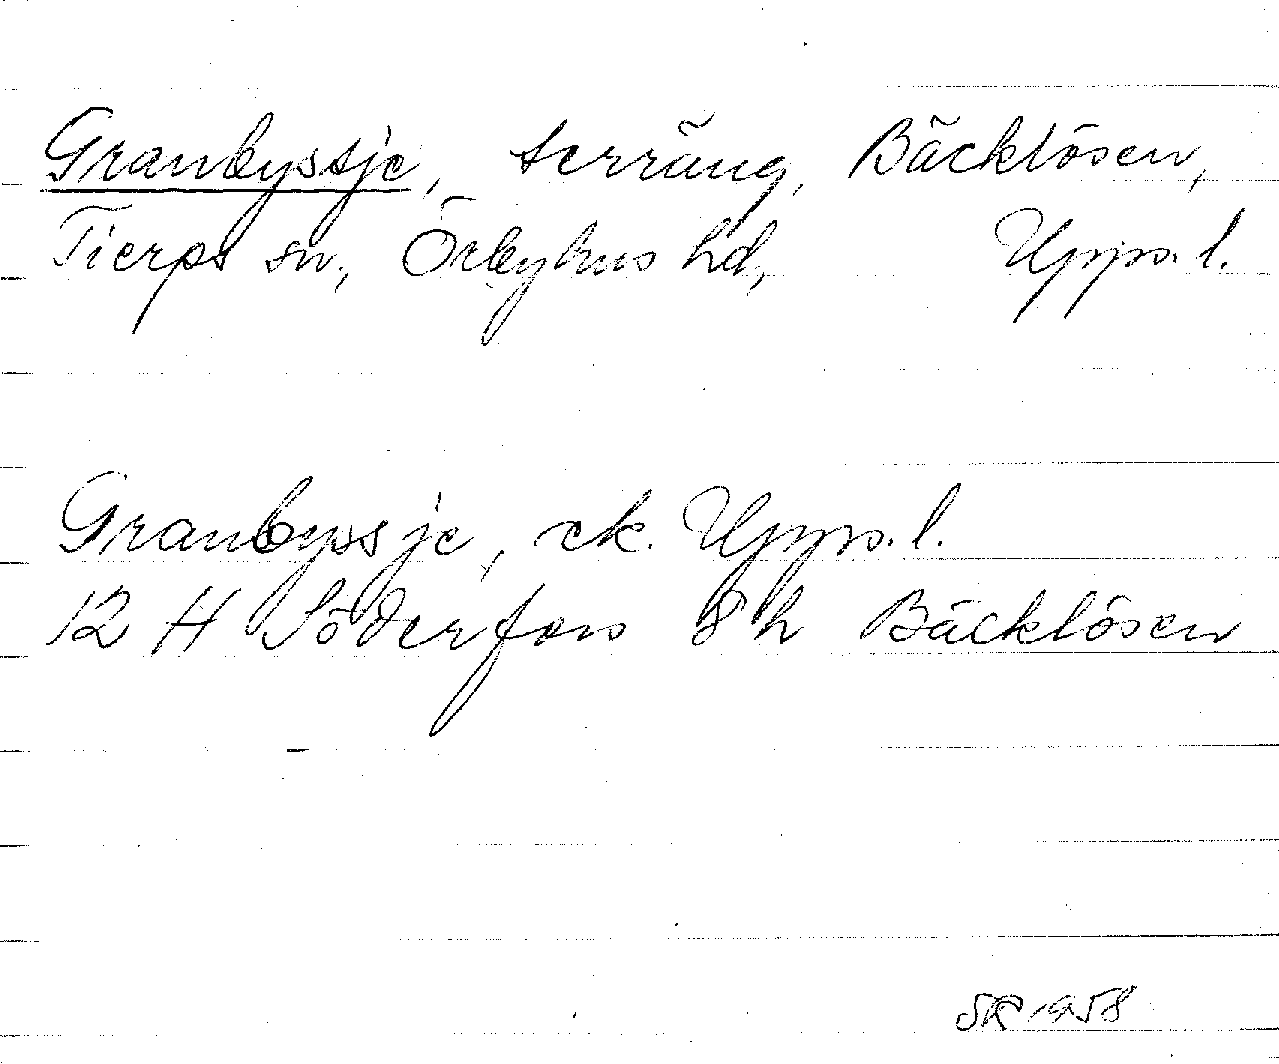 Granbyssje, terräng, Bäcklösen,
Tierps sn, Örbyhus hd, Upps. l.
Granbyssje, ek. Upps. l.
12 H Söderfors 8 h Bäcklösen
SR 1958